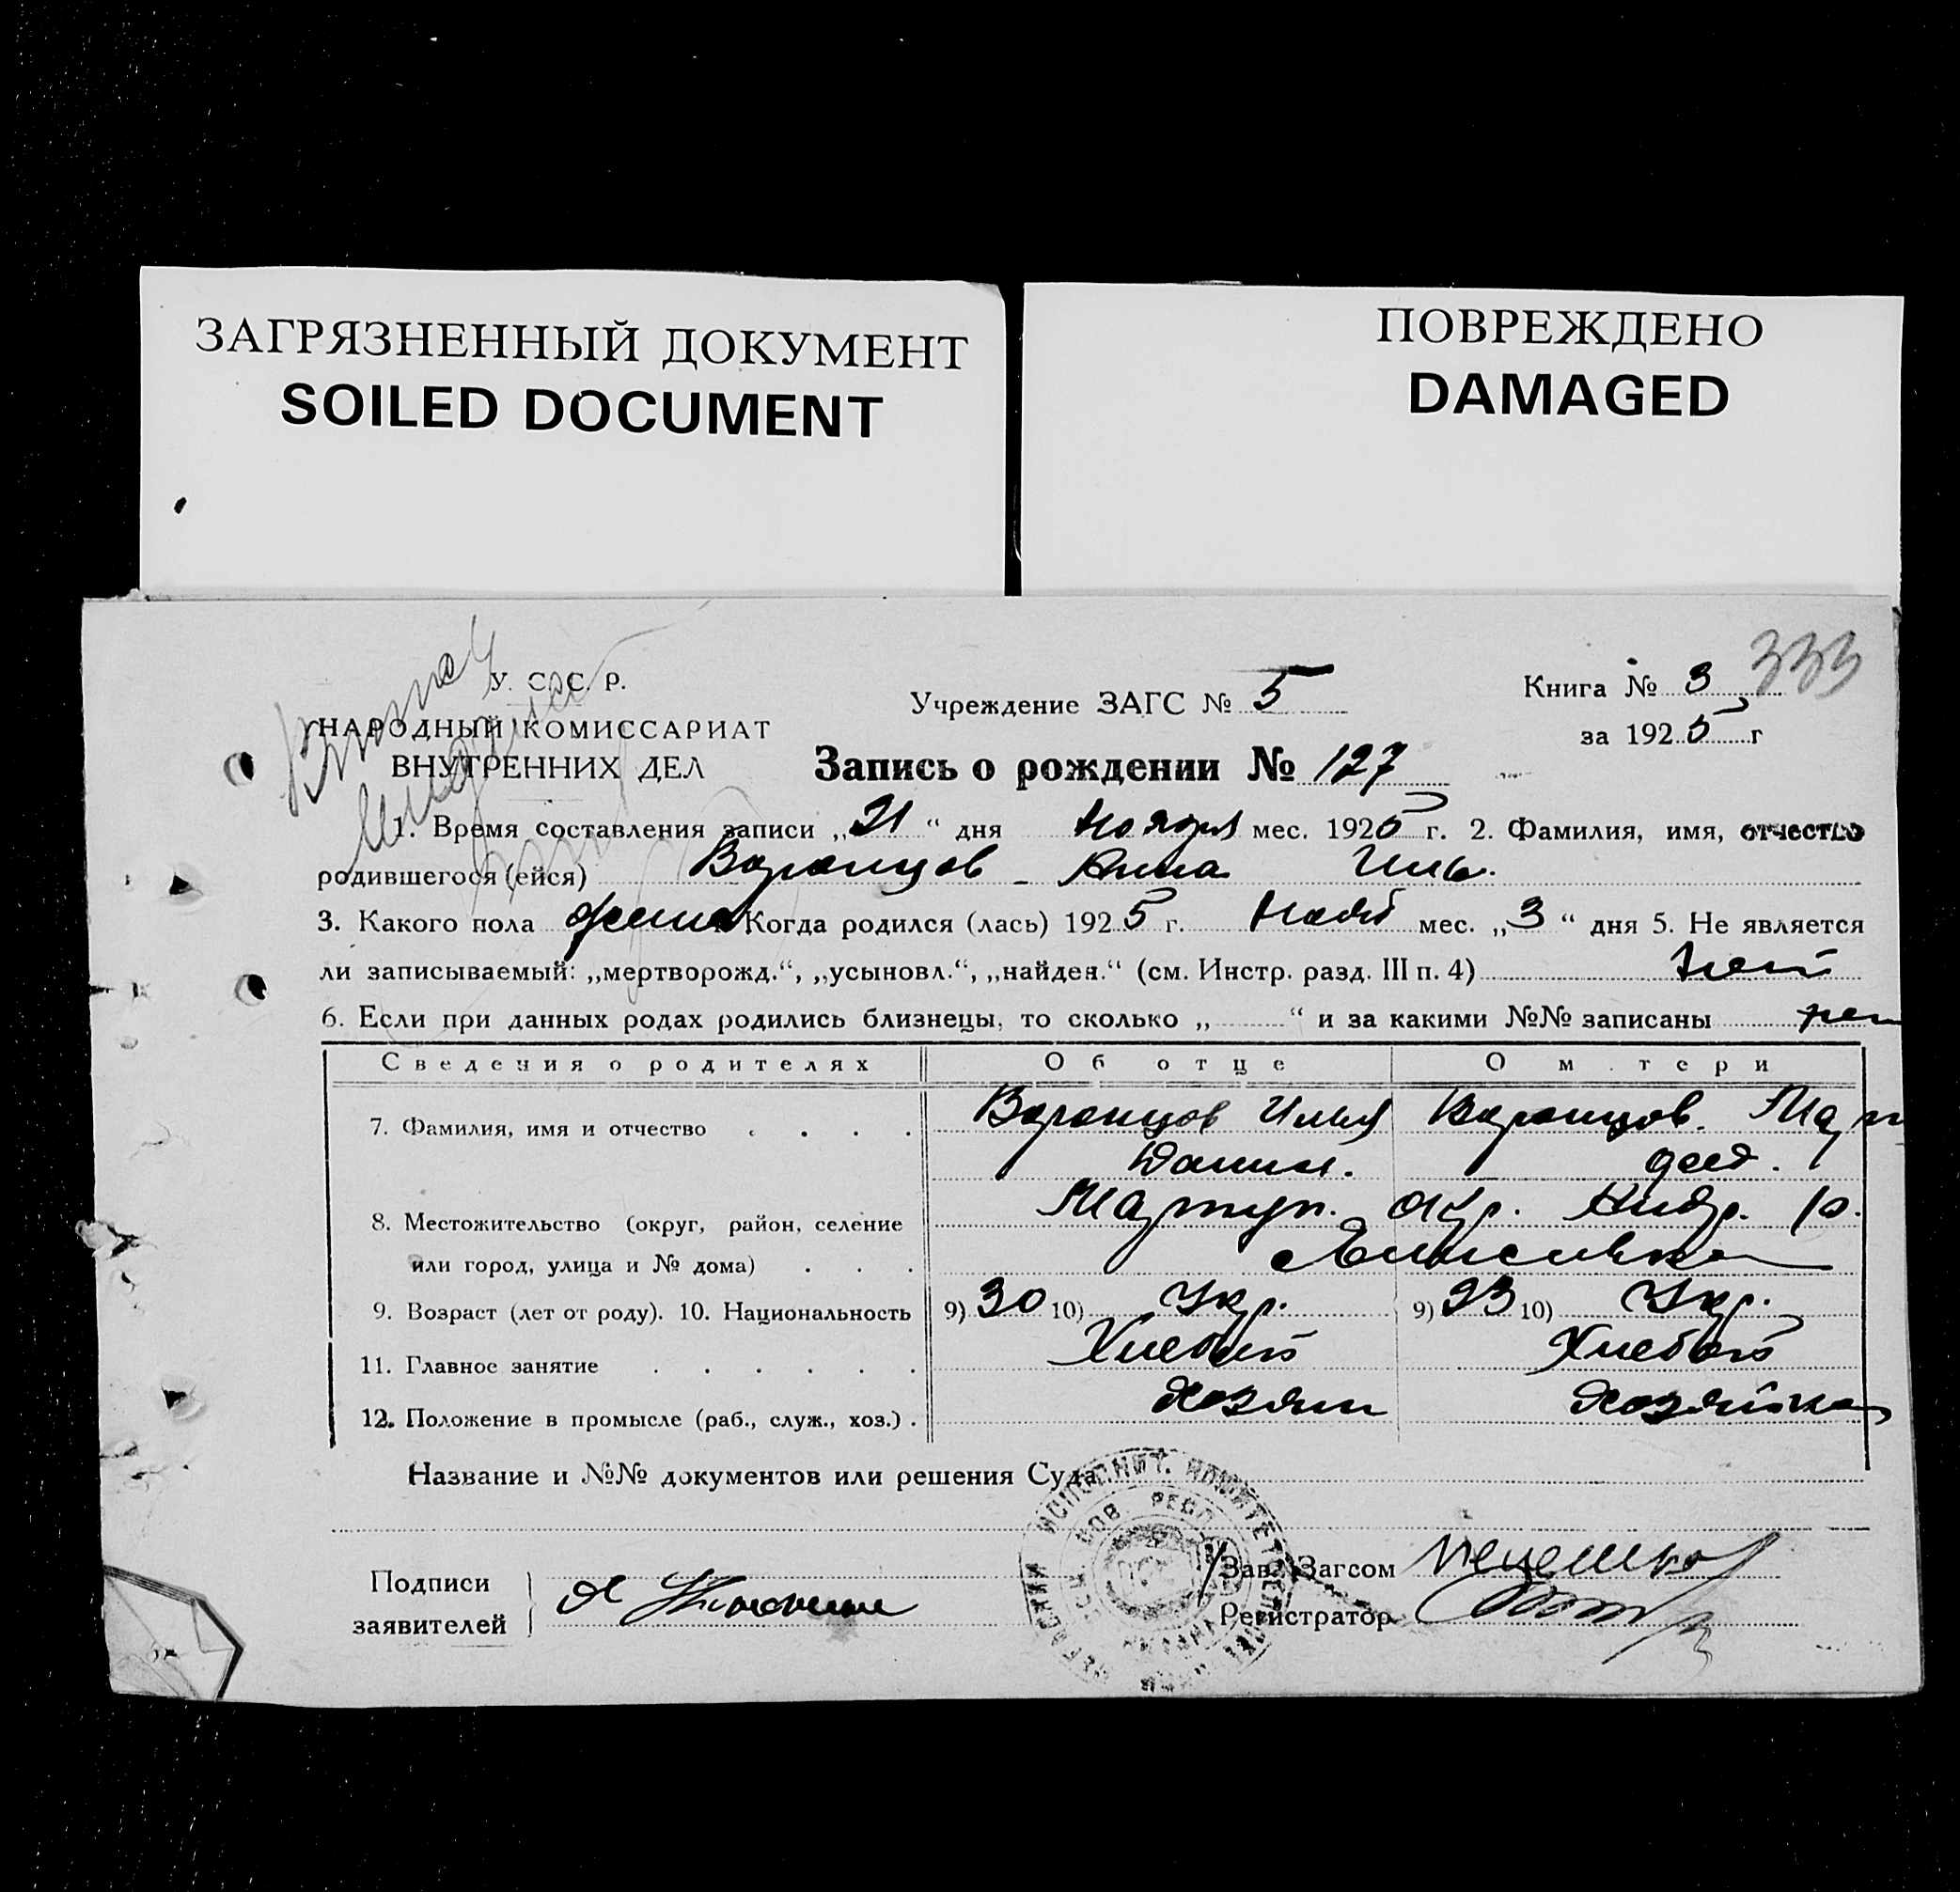 ЗАГРЯЗНЕННЫЙ ДОКУМЕНТ
SOILED DOCUMENT
ПОВРЕЖДЕНО
DAMAGED
333
У. С. С. Р.
НАРОДНЫЙ КОМИССАРИАТ
ВНУТРЕННИХ ДЕЛ
Учреждение ЗАГС № 5
Книга № 3
за 1925 г
Запись о рождении № 127
1. Время составления записи „21“ дня Ноября мес. 1925 г. 2. Фамилия, имя, отчество
родившегося (ейся) Воронцов Анна Иль.
3. Какого пола женс Когда родился (лась) 1925 г. Нояб мес. „3“ дня 5. Не является
ли записываемый: „мертворожд.“, „усыновл.“, „найден.“ (см. Инстр. разд. III п. 4) нет
6. Если при данных родах родились близнецы, то сколько „ “ и за какими №№ записаны нет
Сведения о родителях Об отце О м тери
7. Фамилия, имя и отчество Воронцов Илья Воронцов. Мар
Данил.
8. Местожительство (округ, район, селение Мариуп. окр. р.
или город, улица и № дома)
9. Возраст (лет от роду). 10. Национальность 9) 30 10) Укр. 9) 23 10) Укр.
11. Главное занятие Хлебоп Хлебоп
12. Положение в промысле (раб., служ., хоз.) Хозяин Хозяйка
Название и №№ документов или решения Суда
Подписи
заявителей
Зав. Загсом
Регистратор